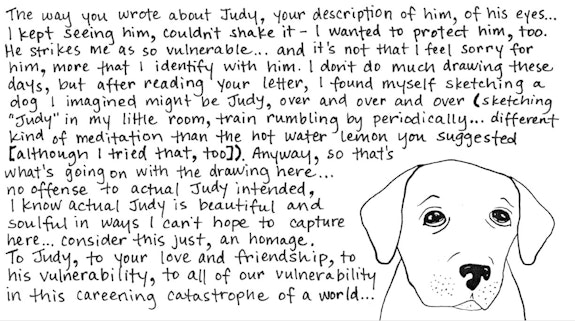 The way you wrote about Judy, your description of him, of his eyes...
I kept seeing him, couldn't shake it - I wanted to protect him, too.
He strikes me as so vulnerable... and it's not that I feel sorry for
him, more that I identify with him. I don't do much drawing these
days, but after reading your letter, I found myself sketching a
dog I imagined might be Judy, over and over and over (sketching
"Judy" in my little room, train rumbling by periodically... different
kind of meditation than the hot water lemon you suggested
[although I tried that, too]). Anyway, so that's
what's going on with the drawing here...
no offense to actual Judy intended,
I know actual Judy is beautiful and
soulful in ways I can't hope to capture
here... consider this just, an homage.
To Judy, to your love and friendship, to
his vulnerability, to all of our vulnerability
in this careening catastrophe of a world...